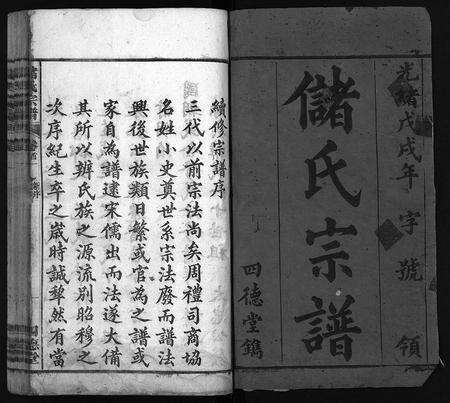 光緒戊戌年 字 號 領
儲氏宗譜
四德堂鐫
續修宗譜序
三代以前宗法尚矣周禮司商協
名姓小史奠世系宗法廢而譜法
興後世族類日繁或官為之譜或
家自為譜逮宋儒出而法遂大備
其所以辨氏族之源流別昭穆之
次序紀生卒之嵗時誠犂然有當
儲氏宗譜
四德堂